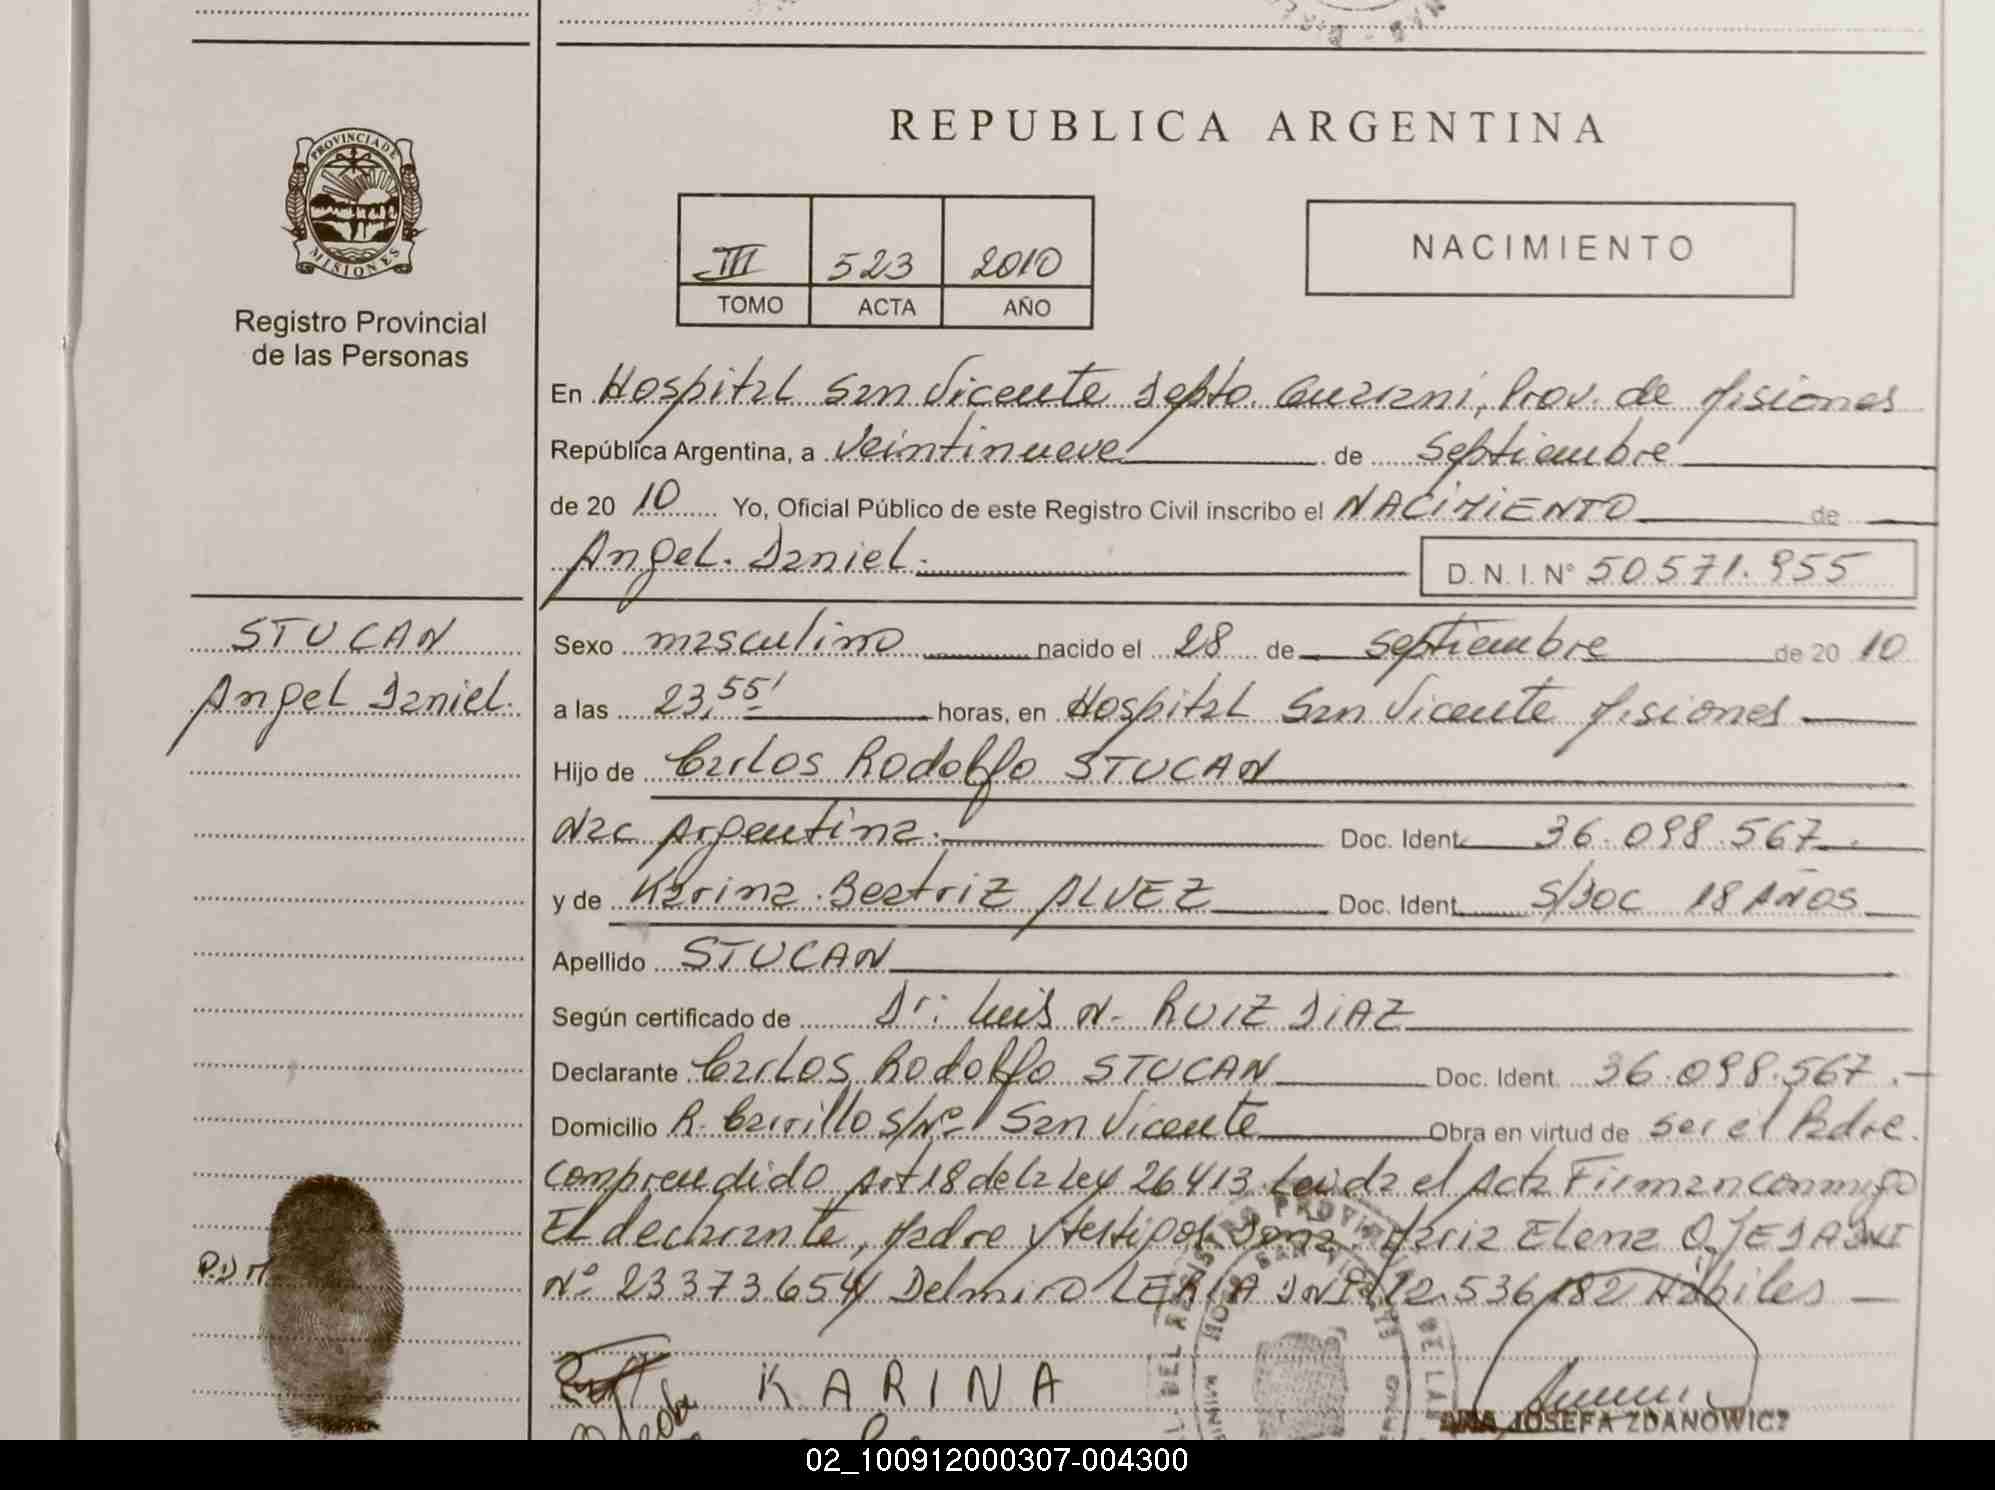 REPUBLICA ARGENTINA
PROVINCIA DE
MISIONES
Registro Provincial
de las Personas
III 523 2010
TOMO ACTA AÑO
NACIMIENTO
En Hospital San Vicente Depto. Guarani, Prov. de Misiones
República Argentina, a Veintinueve de Septiembre
de 20 10 Yo, Oficial Público de este Registro Civil inscribo el NACIMIENTO de
Angel Daniel.
D. N. I. N° 50571.955
STUCAN
Angel Daniel.
Sexo masculino nacido el 28 de Septiembre de 20 10
a las 23,55' horas, en Hospital San Vicente Misiones
Hijo de Carlos Rodolfo STUCAN
Nac Argentina. Doc. Ident. 36.098.567.
y de Karina Beatriz ALVEZ Doc. Ident. S/DOC 18 AÑOS
Apellido STUCAN
Según certificado de Dr: Luis N. RUIZ DIAZ
Declarante Carlos Rodolfo STUCAN Doc. Ident. 36.098.567.
Domicilio R. Carrillo S/Nº San Vicente Obra en virtud de ser el Padre.
Comprendido Art 18 de la Ley 26413. Leida el Acta Firman conmigo
El declarante, Madre y testigos Dona Maria Elena DNI
Nº 23373.654 Delmiro DNI 12.536.182 Hábiles
P.D.M
KARINA
ANA JOSEFA ZDANOWICZ
02_100912000307-004300